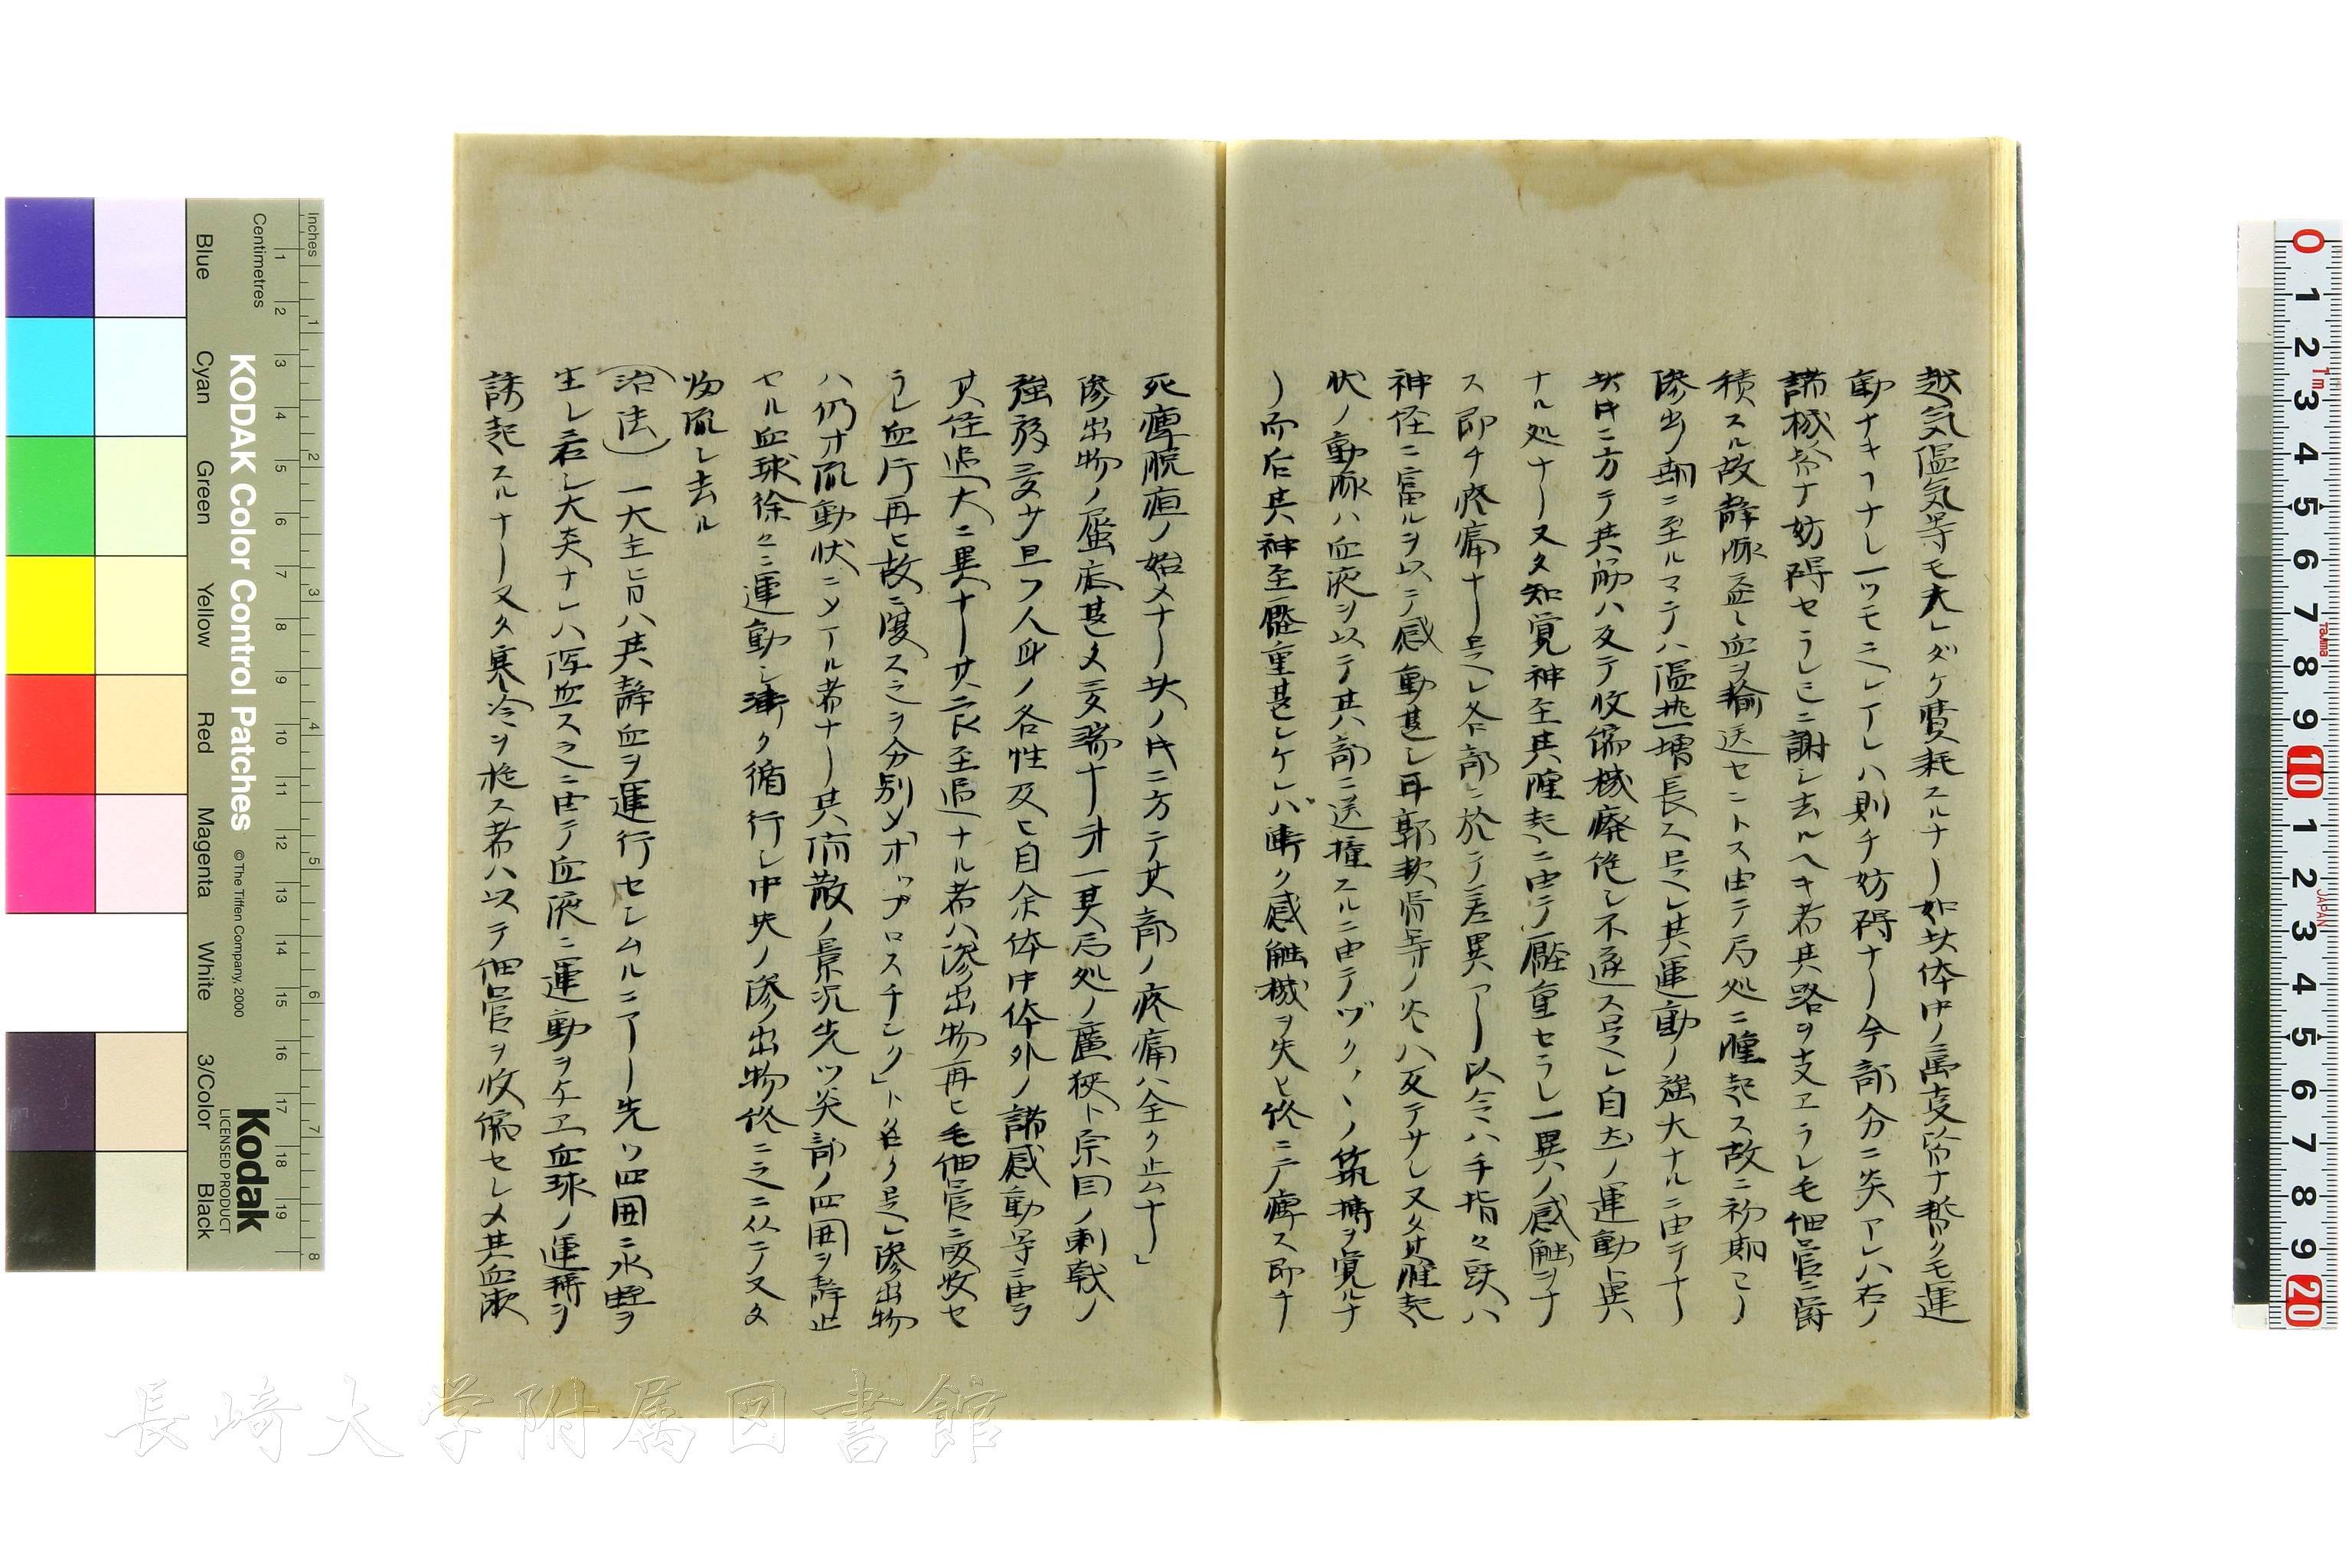 越気温気等モ夫レダケ費耗スルナリ如此体中ノ万支皆ナ暫クモ運
動ナキコナシ一ツモ之レアレハ則チ妨碍ナリ今部分ニ炎アレハ右ノ
諸械皆ナ妨碍セラレ之ニ謝シ去ルヘキ者其路ヲ支エラレ毛細管ニ欝
積スル故静脈益シ血ヲ輸送セントス由テ局処ニ腫起ス故ニ初期ヨリ
滲出ノ期ニ至ルマテハ温
増長ス是レ其運動ノ強大ナルニ由テナリ
此時ニ方テ其筋ハ反テ收縮械癈絶シ不遂ス是レ自然ノ運動ト異
ナル処ナリ又タ知覚神至其腫起ニ由テ壓重セラレ一異ノ感触ヲナ
ス即チ疼痛ナリ是レ各部ニ於テ差異アリ以令ハ手指々頭ハ
神怪ニ富ルヲ以テ感動甚シ耳郭軟骨等ノ炎ハ反テサレ又タ其腫起
状ノ動脈ハ血液ヲ以テ其部ニ送撞スルニ由テヅクヽヽノ築摶ヲ覚ルナ
リ而后其神至壓重甚シケレバ漸ク感触械ヲ失ヒ終ニ痺ス即チ
死痺脱疽ノ始メナリ此ノ時ニ方テ其部ノ疼痛ハ全ク止ムナリ」
滲出物ノ
甚タ多端ナリ第一其局処ノ廣狹ト原因ノ刺戟ノ
強弱
且フ人身ノ各性及ヒ自余体中体外ノ諸感動等ニ由ヲ
其径過大ニ異ナリ其良至過ナル者ハ滲出物再ヒ毛細管ニ吸收セ
ラレ血行再ヒ故ニ復ス之ヲ分別〆オップロスチング」ト名ク是レ滲出物
ハ仍ホ流動状ニ〆アル者ナリ其
散ノ景況先ツ炎部ノ四囲ヲ静止
セル血球徐々ニ運動シ漸ク循行シ中央ノ滲出物終ニ之ニ从テ又タ
流シ去ル
(治法)一大主旨ハ其静血ヲ運行セシムルニアリ先ツ四囲ニ水蛭ヲ
生シ若シ大炎ナレハ
血ス之ニ由テ血液ニ運動ヲ与エ血球ノ運轉ヲ
誘起スルナリ又タ寒冷ヲ施ス者ハ以テ細管ヲ收縮セシメ其血液
KODAK Color Control Patches
© The Tiffen Company, 2000
Kodak
LICENSED PRODUCT
Inches
Centimetres
Blue
Cyan
Green
Yellow
Red
Magenta
White
3/Color
Black
長崎大学附属図書館